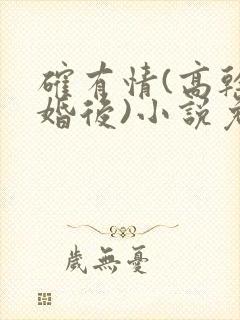 確有情(高幹
婚後)小說免
歲無憂